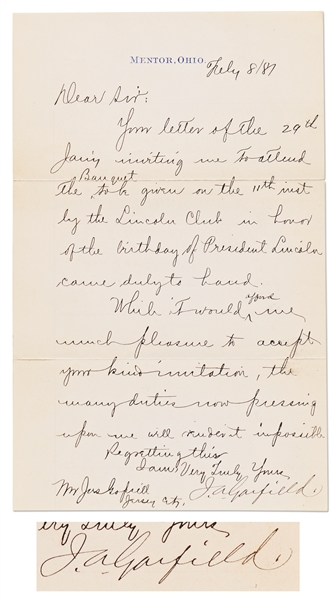 MENTOR, OHIO.
Feby 8/81
Dear Sir:
Your letter of the 29th
Jan'y inviting me to attend
Banquet
the, to be given on the 11th inst
by the Lincoln Club in honor
of the birthday of President Lincoln
came duly to hand.
While it would
yours
me
much pleasure to accept
your kind invitation, the
many duties now pressing
upon me will render it impossible
Regretting this
I am Very Truly Yours
J.A. Garfield.
Mr Jos.
Jersey City.
ery Truly Yours
J.A. Garfield.